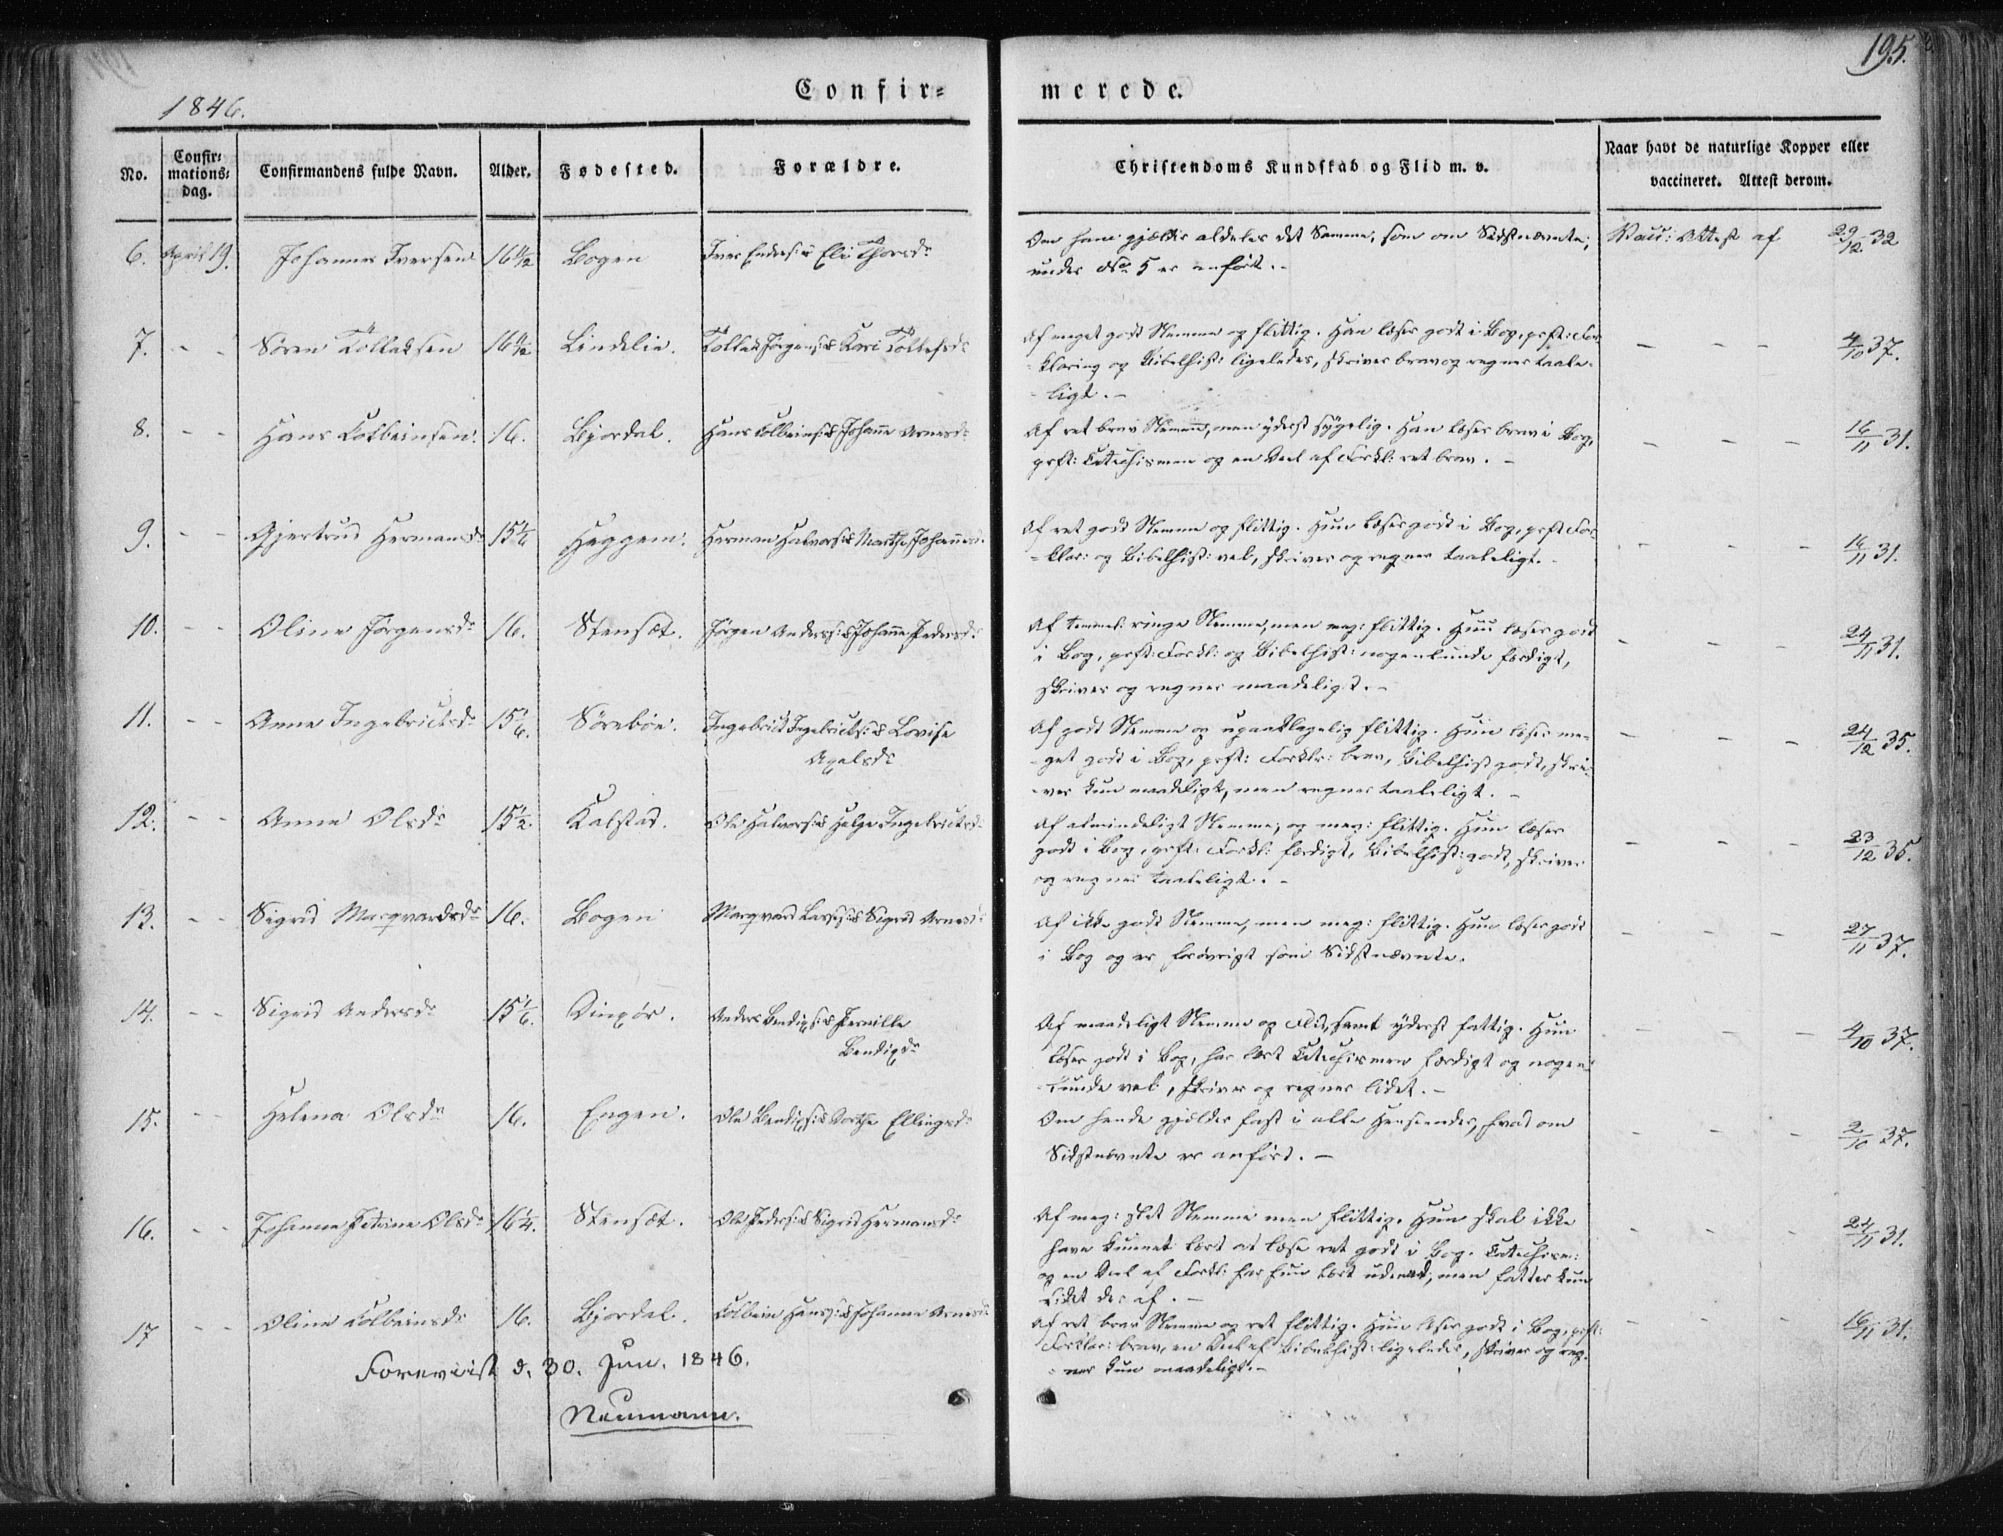 195.
Confir-
merede.
1846.
No.
Confir-
mations-
dag.
Confirmandens fulde Navn.
Alder.
Fødested.
Forældre.
Christendoms Kundskab og Flid m. v.
Naar havt de naturlige Kopper eller
vaccineret. Attest derom.
6. April 19. Johannes Iversen 16 1/2 Bogen Iver Enders: & Eli Thorsdr
Om ham gjælder aldeles det Samme, som om Sidstnævnte,
under No 5 er anført. -
Vacc: Attest af 29/12 32
7. - - Søren Tollaksen 16 1/2 Lindelie. Tollak Jørgens: & Kari Tollefsdr
Af meget godt Nemme og flittig. Han læser godt i Bog, prest: For-
klaring og Bibelhist: ligeledes, skriver brav og regner taale-
ligt. -
- - - 4/10 37.
8. - - Hans Colbeinsen. 16. Bjordal. Hans Colbeins: & Johanne Arnesdr
Af ret brav Nemme, men yderst sygelig. Han læser brav i Bog,
prest: Catechismen og en Deel af Forkl: ret brav. -
- - - 16/11 31.
9. - - Gjertrud Hermansdr 15 1/4 Heggem. Herman Halvors: & Marthe Johannesd.
Af ret godt Nemme og flittig. Hun læser godt i Bog, prest For-
klar: og Bibelhist: vel, skriver og regner taaleligt. -
- - - 16/11 31.
10. - - Oline Jørgensdr 16. Stensæt. Jørgen Anderss: & Johanne Pedersdr
Af temmel: ringe Nemme, men meg: flittig. Hun læser godt
i Bog, prest: Forkl: og Bibelhist: nogenlunde færdigt,
skriver og regner maadeligt. -
- - - 24/11 31.
11. - - Anne Ingebrictsdr 15 1/6. Sørebøe. Ingebrict Ingebricts: & Lovise
Axelsdr
Af godt Nemme og upaaklagelig flittig. Hun læser me-
get godt i Bog, prest: Forklr: brav, Bibelhist godt, skri-
ver kun maadeligt, men regner taaleligt. -
- - - 24/12 35.
12. - - Anne Olsdr 15 1/2. Kalstad. Ole Halvors: & Helge Ingebrictsdr
Af almindeligt Nemme, og meg: flittig. Hun læser
godt i Bog, prest: Forkl: færdigt, Bibelhist: godt, skriver
og regner taaleligt. -
- - - 23/12 35.
13. - - Sigrid Marqvardsdr 16. Bogen Marqvard Larss: & Sigrid Arnesdr
Af ikke godt Nemme, men meg: flittig. Hun læser godt
i Bog og er forøvrigt som Sidstnævnte.
- - - 27/11 37.
14. - - Sigrid Andersdr 15 1/6. Anders Bendixs: & Pernille
Bendixdr
Af maadeligt Nemme og Flid, samt yderst fattig. Hun
læser godt i Bog, har lært Catechismen færdigt og nogen-
lunde vel, skriver og regner lidet. -
- - - 4/10 37.
15. - - Helena Olsdr 16. Engen. Ole Bendixs: & Dorthe Ellingsdr
Om hende gjælder fast i alle Henseender, hvad om
Sidstnævnte er anført. -
- - - 2/10 37.
16. - - Johanne Petrine Olsdr 16 1/4. Stensæt. Ole Peders: & Sigrid Hermansdr
Af meg: slet Nemme men flittig. Hun skal ikke
have kunnet lært at læse ret godt i Bog. Catechism:
og en Deel af Forkl: har hun lært udenad, men fatter kun
Lidet der af. -
- - - 24/11 31.
17 - - Oline Colbeinsdr 16. Bjordal. Colbein Hans: & Johanne Arnesdr
Af ret brav Nemme og ret flittig. Hun læser godt i Bog, prest:
Forklar: brav, en Deel af Bibelhist: ligeledes, skriver og reg-
ner kun maadeligt. -
- - - 16/11 31.
Foreviist d. 30. Jun. 1846.
Neumann.